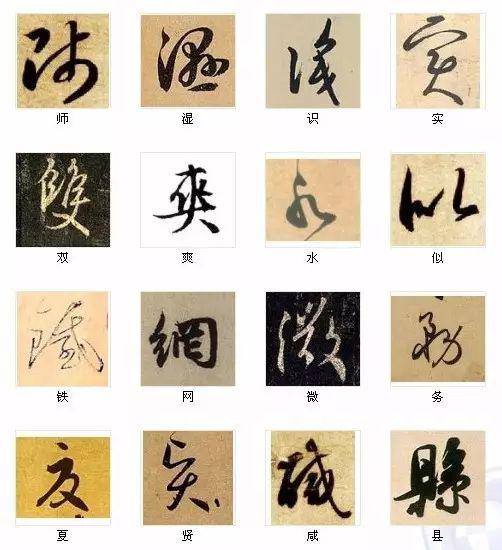 师 湿 识 实
双 爽 水 似
铁 网 微 务
夏 贤 咸 县